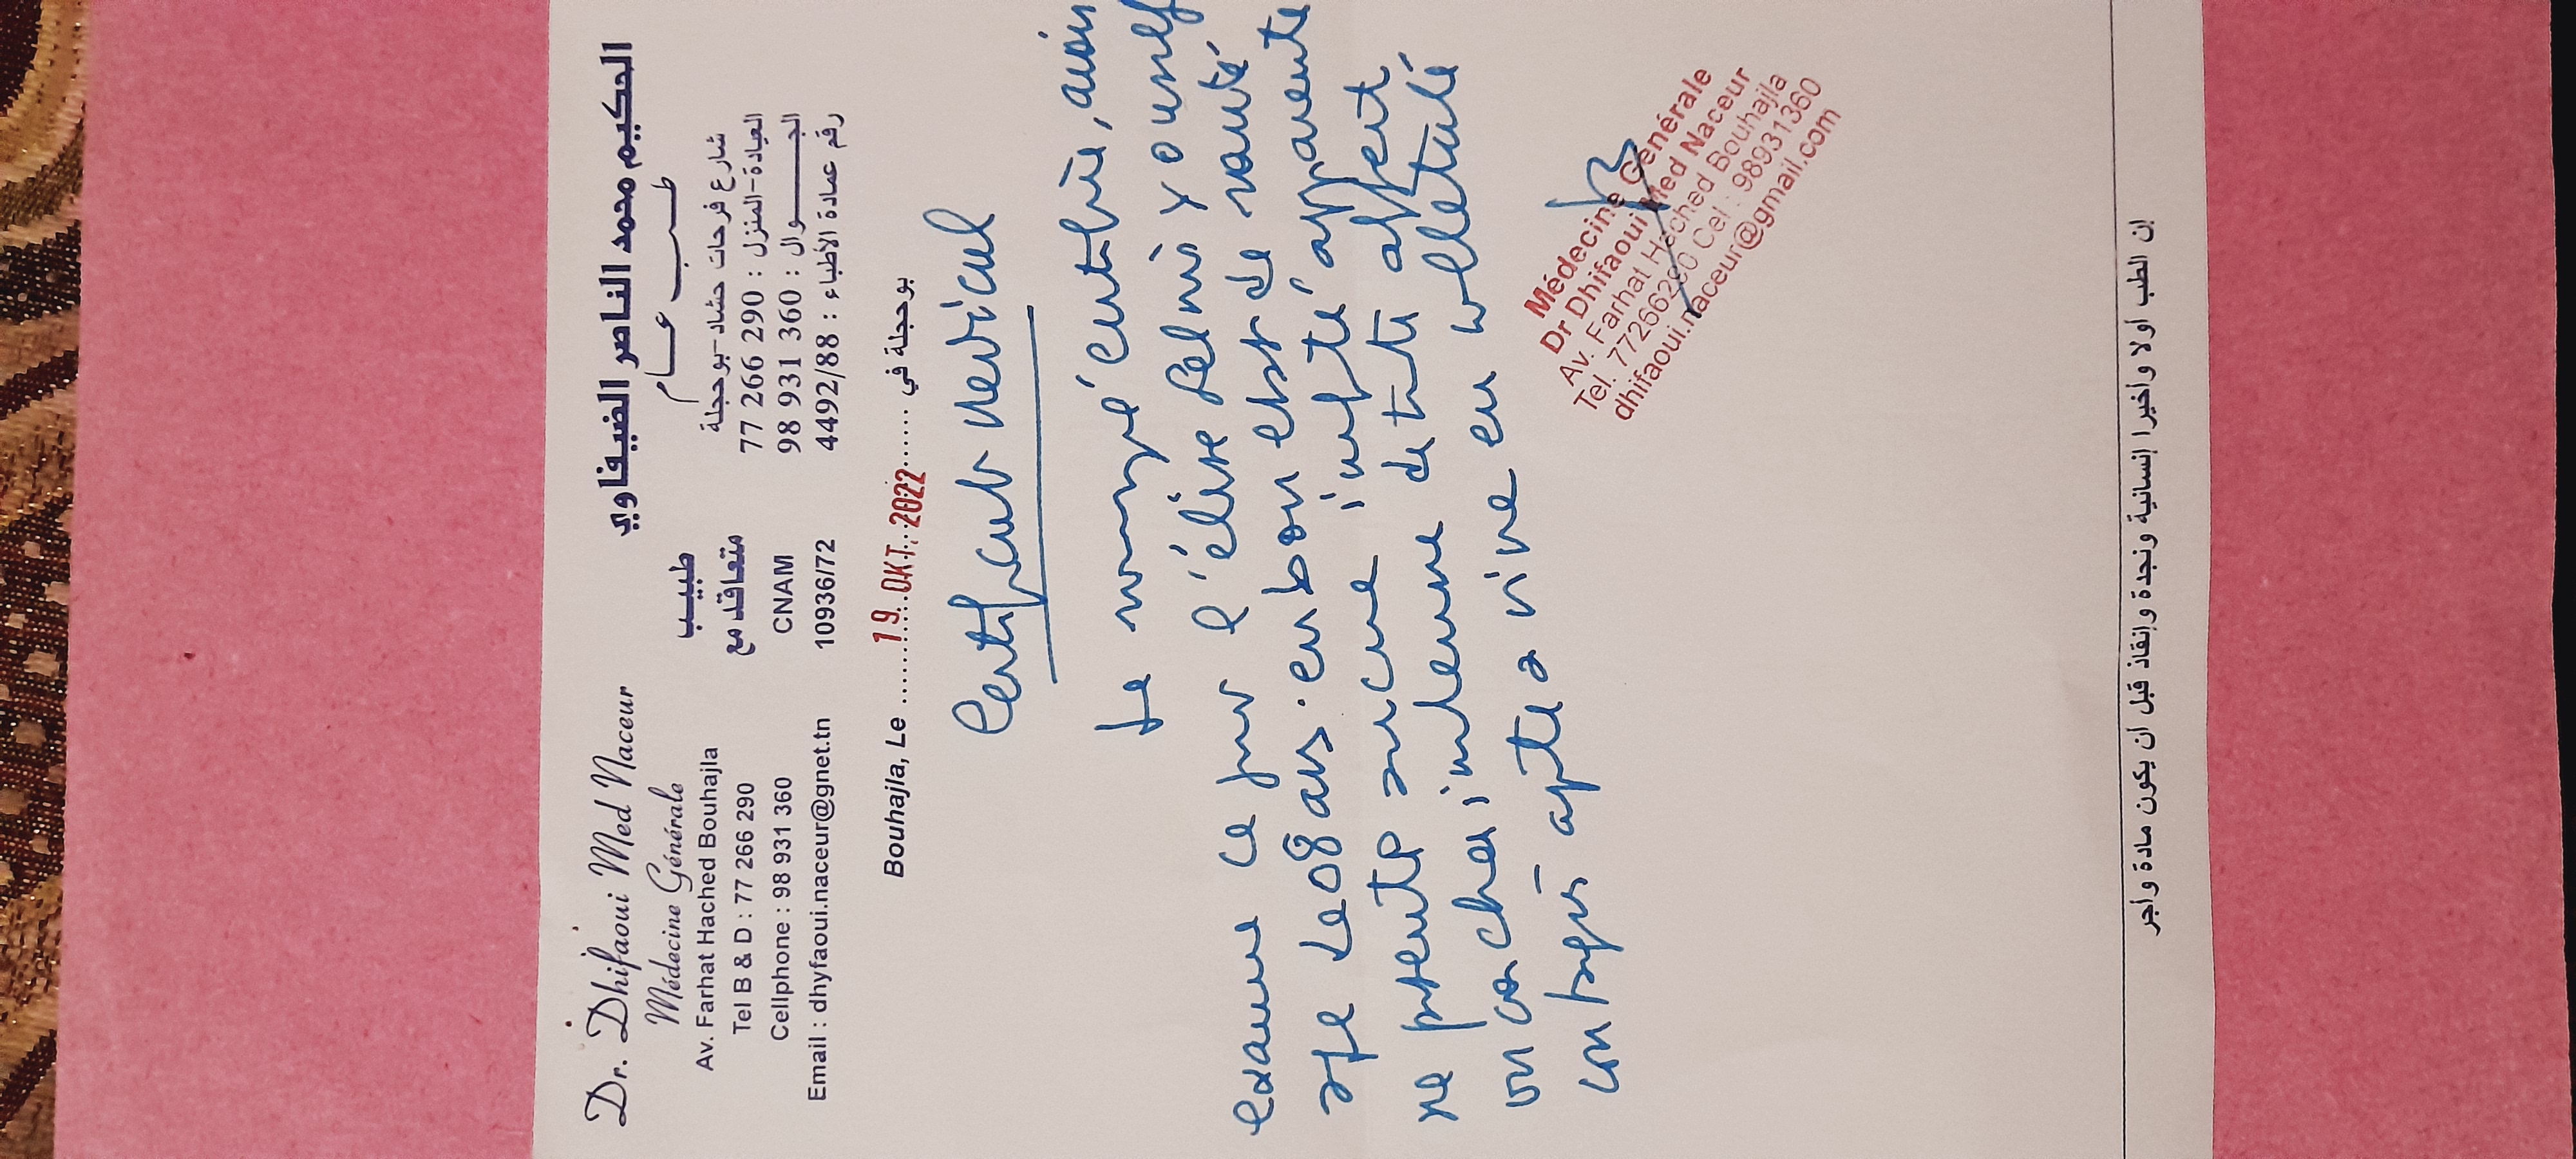 Dr. Dhifaoui Med Naceur
Médecine Générale
Av. Farhat Hached Bouhajla
Tel B & D : 77 266 290
Cellphone : 98 931 360
Email : dhyfaoui.naceur@gnet.tn
طبيب
متعاقد مع
CNAM
10936/72
الحكيم محمد الناصر الضيفاوي
طب عام
شارع فرحات حشاد-بوحجلة
العيادة-المنزل : 290 266 77
الجوال : 360 931 98
رقم عمادة الأطباء : 4492/88
Bouhajla, Le ........19. OKT. 2022........ بوحجلة في
Certificat médical
Je soussigné certifie, avoir
examiné ce jour l'élève Selmi Younsf
âgé de 08 ans. en bon état de santé
ne présente aucune infirmité apparente
ou cachée indemne de toute affect
contagi apte a vivre en collectivité
Médecine Générale
Dr Dhifaoui Med Naceur
Av. Farhat Hached Bouhajla
Tel. 77266290 Cel : 98931360
dhifaoui.naceur@gmail.com
إن الطب أولا وأخيرا إنسانية ونجدة وإنقاذ قبل أن يكون مادة وأجر